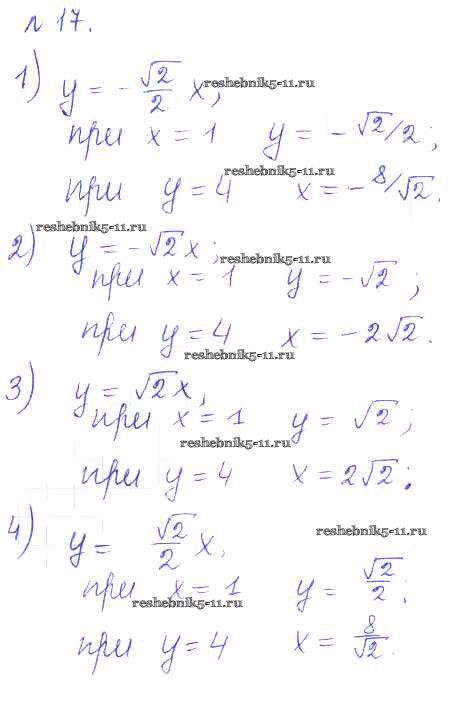 № 17.
1) y = -√2/2 x, reshebnik5-11.ru
при x = 1 y = -√2/2;
reshebnik5-11.ru
при y = 4 x = -8/√2.
reshebnik5-11.ru
2) y = -√2 x; reshebnik5-11.ru
при x = 1 y = -√2;
при y = 4 x = -2√2.
reshebnik5-11.ru
3) y = √2 x,
при x = 1 y = √2;
reshebnik5-11.ru
при y = 4 x = 2√2;
4) y = √2/2 x, reshebnik5-11.ru
при x = 1 y = √2/2;
reshebnik5-11.ru
при y = 4 x = 8/√2.